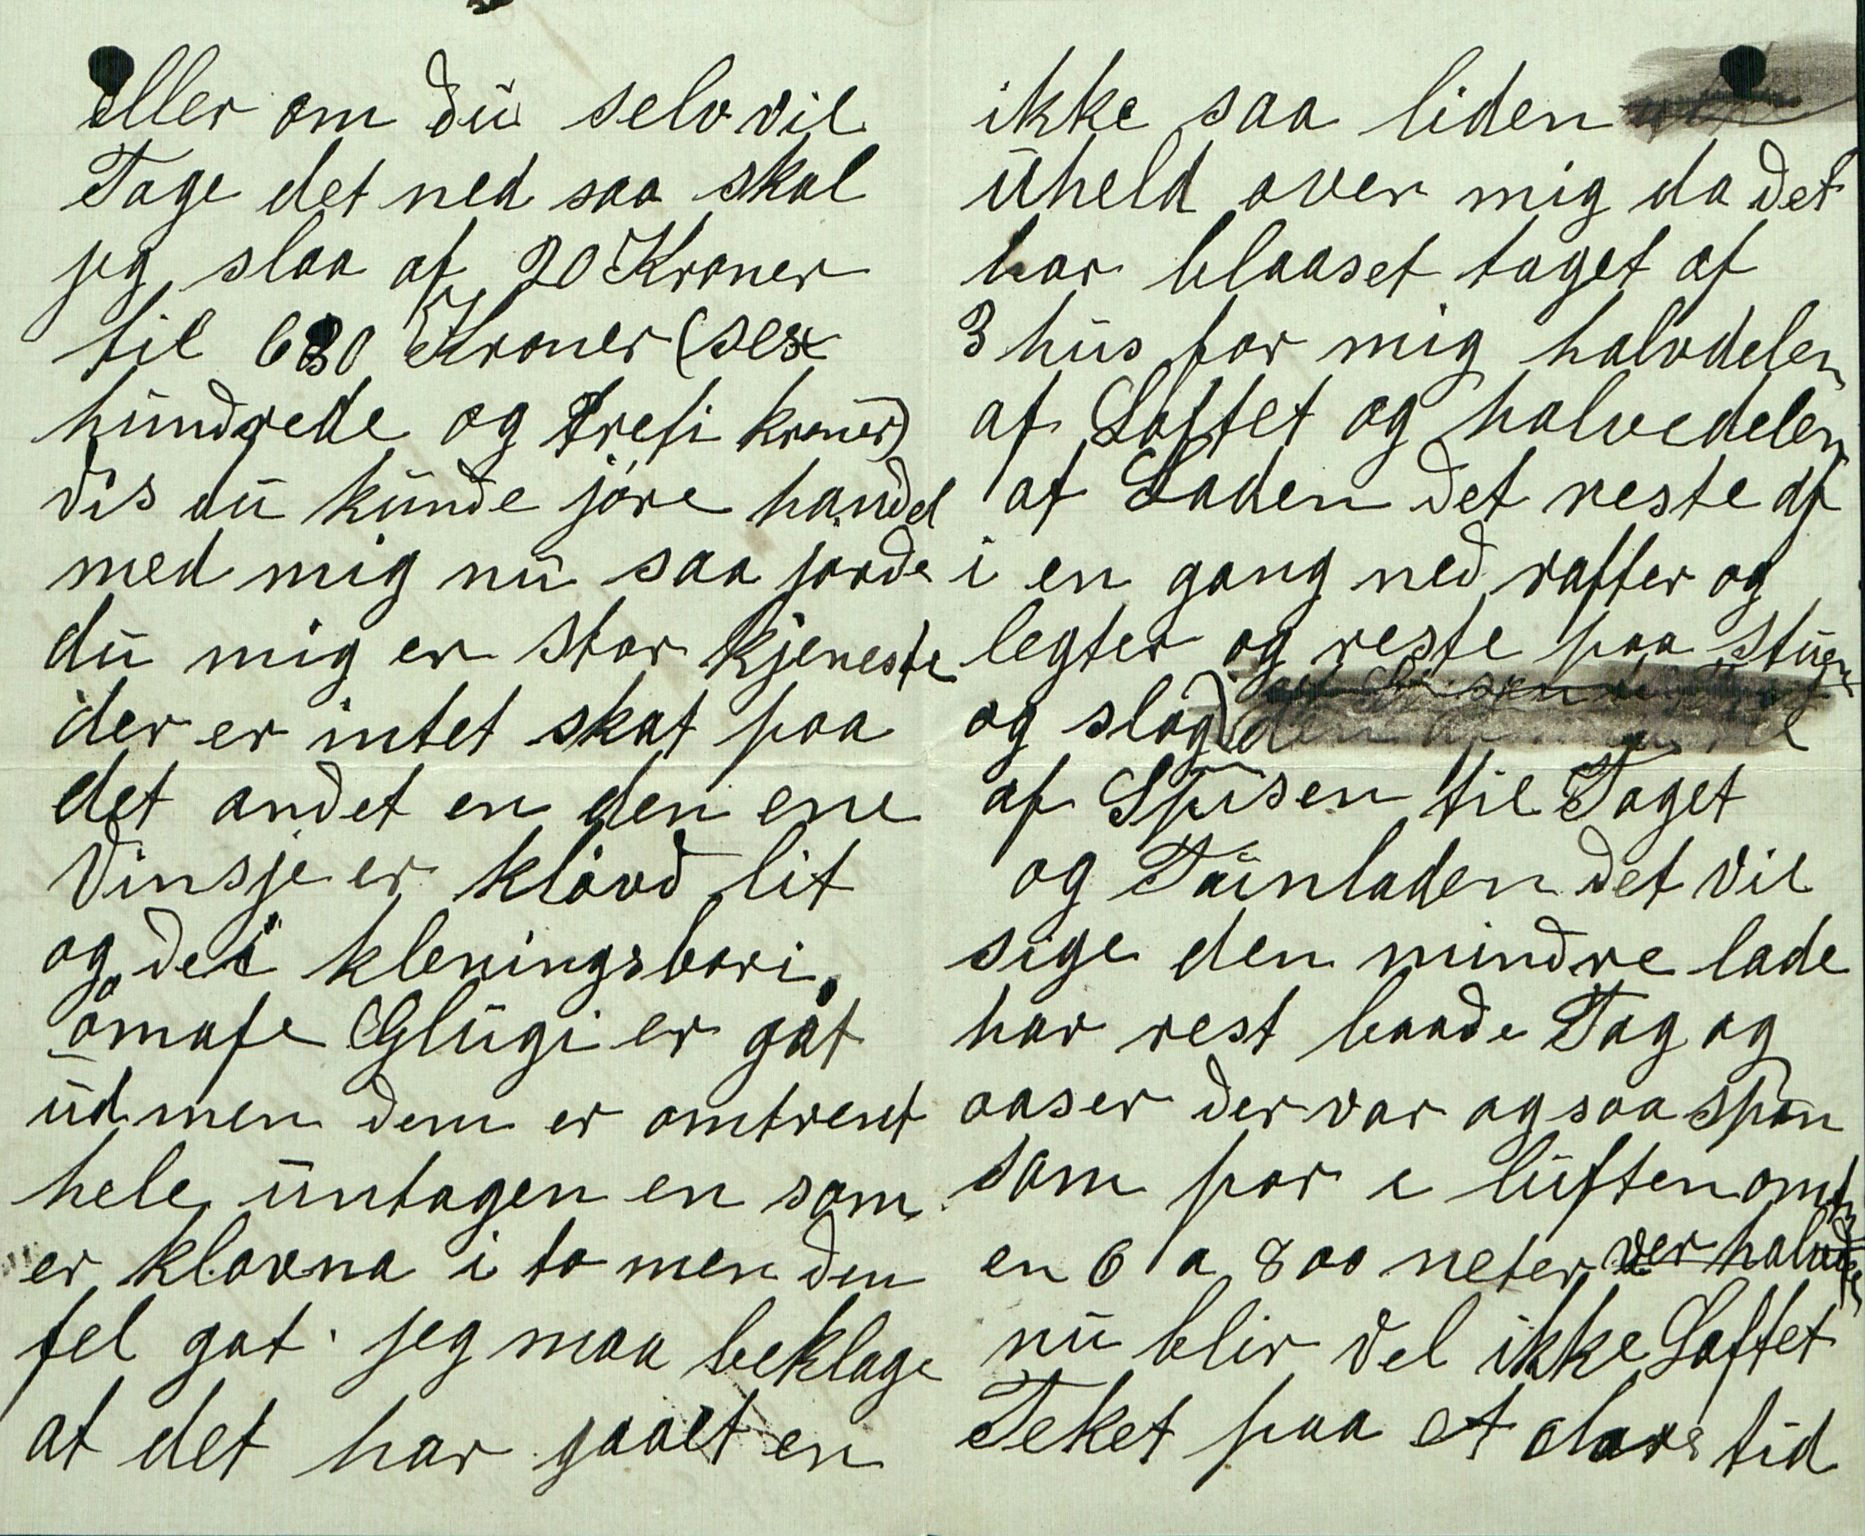 eller om du selv vil
Tage det ned saa skal
jeg slaa af 20 Kroner
til 630 Kroner (sex
hundrede og trefi kroner)
vis du kunde jøre handel
med mig nu saa jørde
du mig en stor kjeneste
der er intet skat paa
det andet en den ene
Vinsje er kløvd lit
og dei kleningsbori
omafe Glugi er gåt
ud men dem er omtrent
hele untagen en som
er klovna i to men den
fel gat. jeg maa beklage
at det har gaaet en
ikke saa liden
uheld over mig da det
har blaaset taget af
3 hus for mig halvdelen
af Loftet og halvedelen
af Laden det reste af
i en gang ned rafter og
legter og reste paa Stuen
og slog den
af Spisen til Taget
og Tünladen det vil
sige den mindre lade
har rest baade Tag og
aaser der var ogsaa spøn
som for i luften omtr
en 6 a 800 neter ver halvdele
nu blir vel ikke Loftet
Teket paa et aars tid